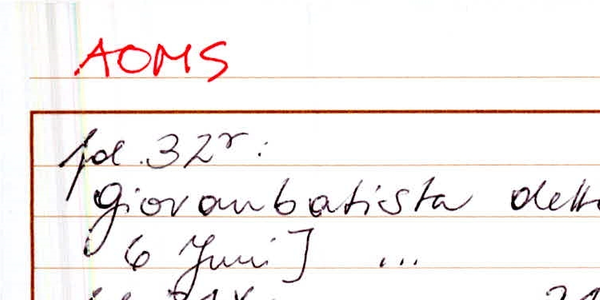 AOMS
fol. 32r:
Giovanbatista dell
6 Juni] ...